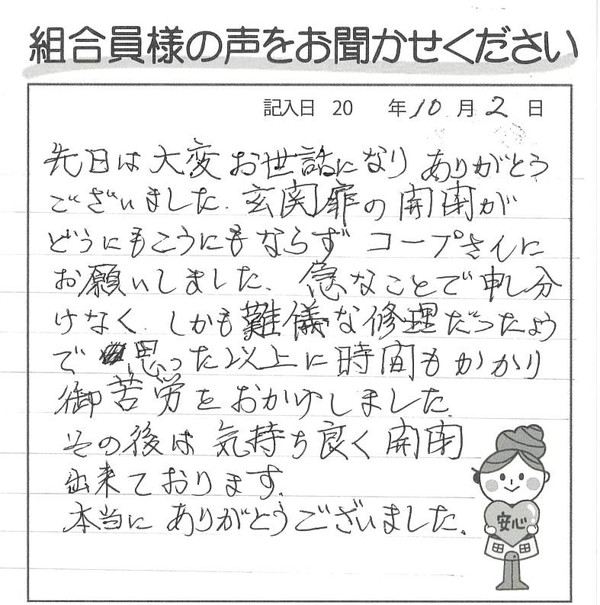 組合員様の声をお聞かせください
記入日 20 年10月2日
先日は大変お世話になりありがとう
ございました。玄関扉の開閉が
どうにもこうにもならず コープさんに
お願いしました。急なことで申し分
けなく、しかも難儀な修理だったよう
で 思った以上に時間もかかり
御苦労をおかけしました。
その後は気持ち良く開閉
出来ております。
本当に ありがとうございました。
安心